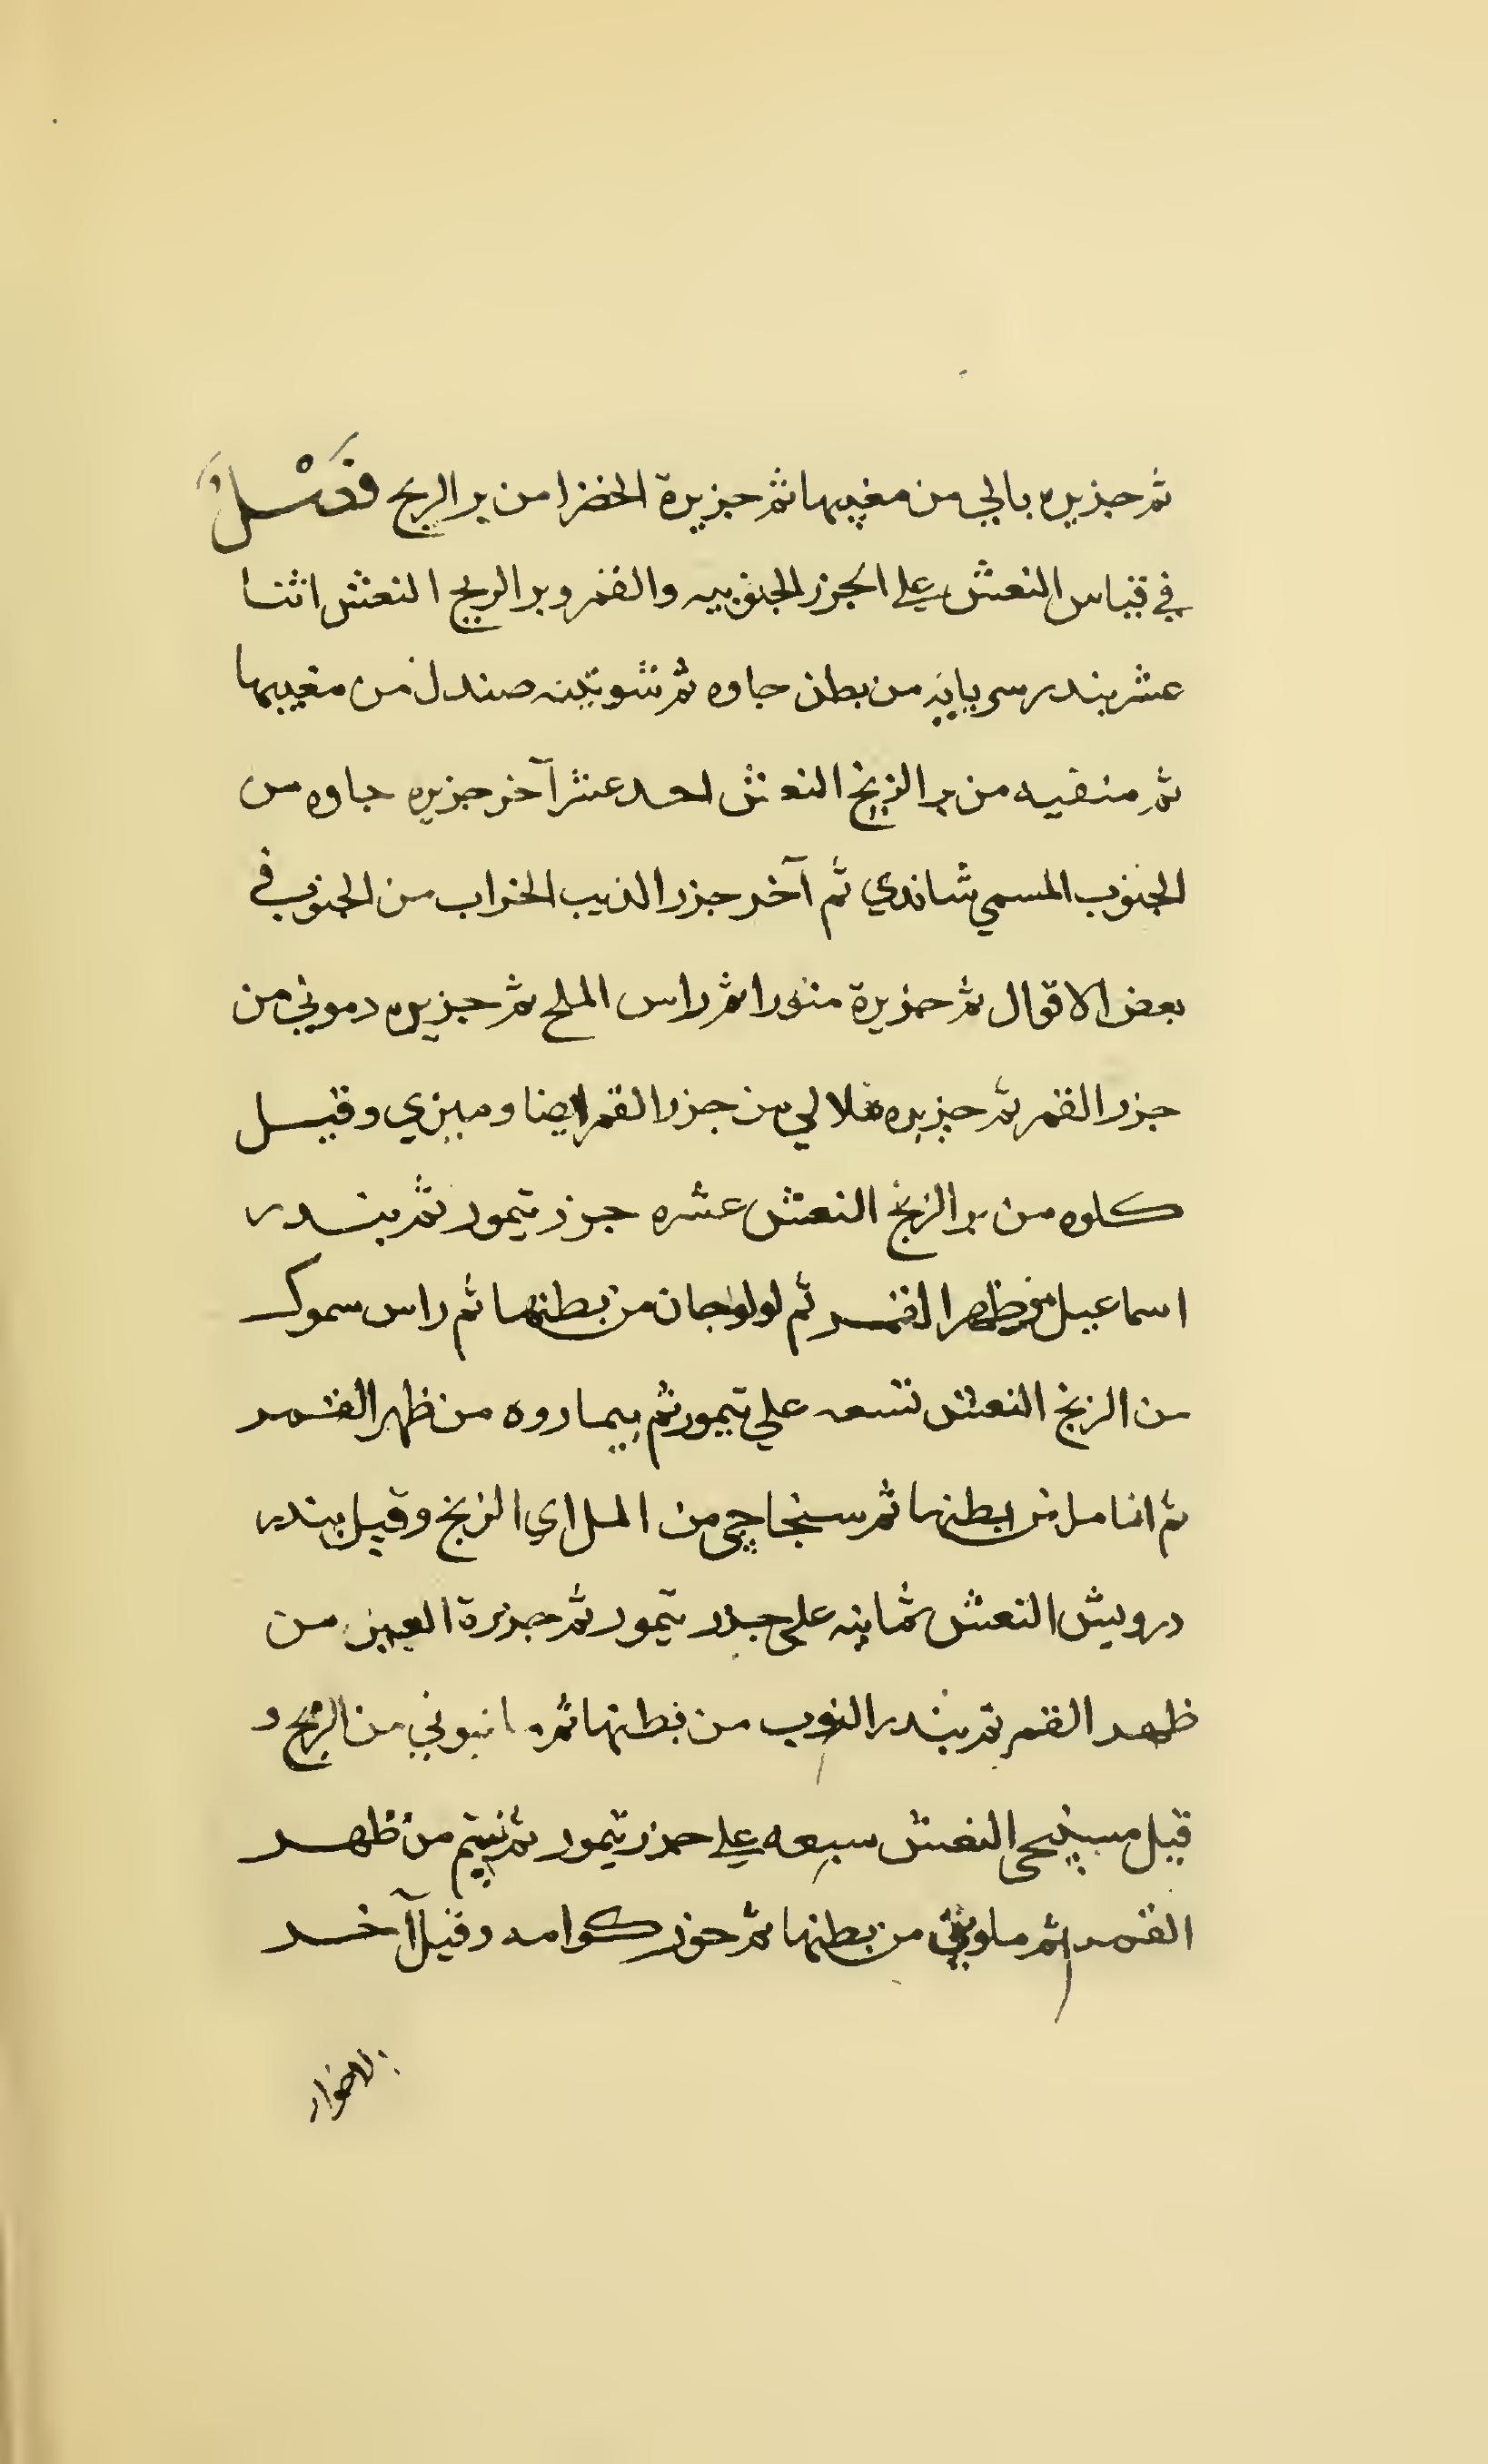 ثم جزيره بالي من مغيبها ثم جزيرة الخضرا من بر الريخ فصل
في قياس النعش علي الجزر الجنوبيه والقمر وبر الريخ النعش اثنا
عشر بندر سربايه من بطن جاوه ثم شوتينه صندل من مغيبها
ثم منفيه من بر الزنج النعش احد عشر آخر جزيره جاوه من
الجنوب المسمي شاندي ثم آخر جزر الذيب الخراب من الجنوب في
بعض الاقوال ثم جزيرة منورا ثم راس الملح ثم جزيره دموني من
جزر القمر ثم جزيره ملالي من جزر القمر ايضا ومبزي وقيل
كلوه من بر الزنج النعش عشره جزر تيمور ثم بندر
اسماعيل من ظهر القمر ثم لولوجان من بطنها ثم راس سموك
من الزنج النعش تسعه علي تيمور ثم بيماروه من ظهر القمر
ثم انامل من بطنها ثم سنجاجي من المل اي الزنج وقيل بندر
درويش النعش ثمانيه علي جزر تيمور ثم جزيرة العين من
ظهر القمر ثم بندر النوب من بطنها ثم انبوني من الزنج و
قيل مسنيجي النعش سبعه علي جزر تيمور ثم من ظهر
القمر ثم من بطنها ثم خور كوامه وقيل آخر
الاخوار